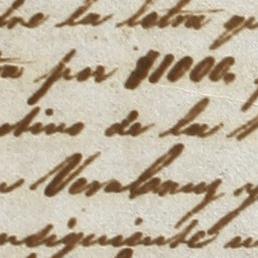 bre la letra qu
ta por $1000.
utivo de la
Veralany y
nsiguiente u